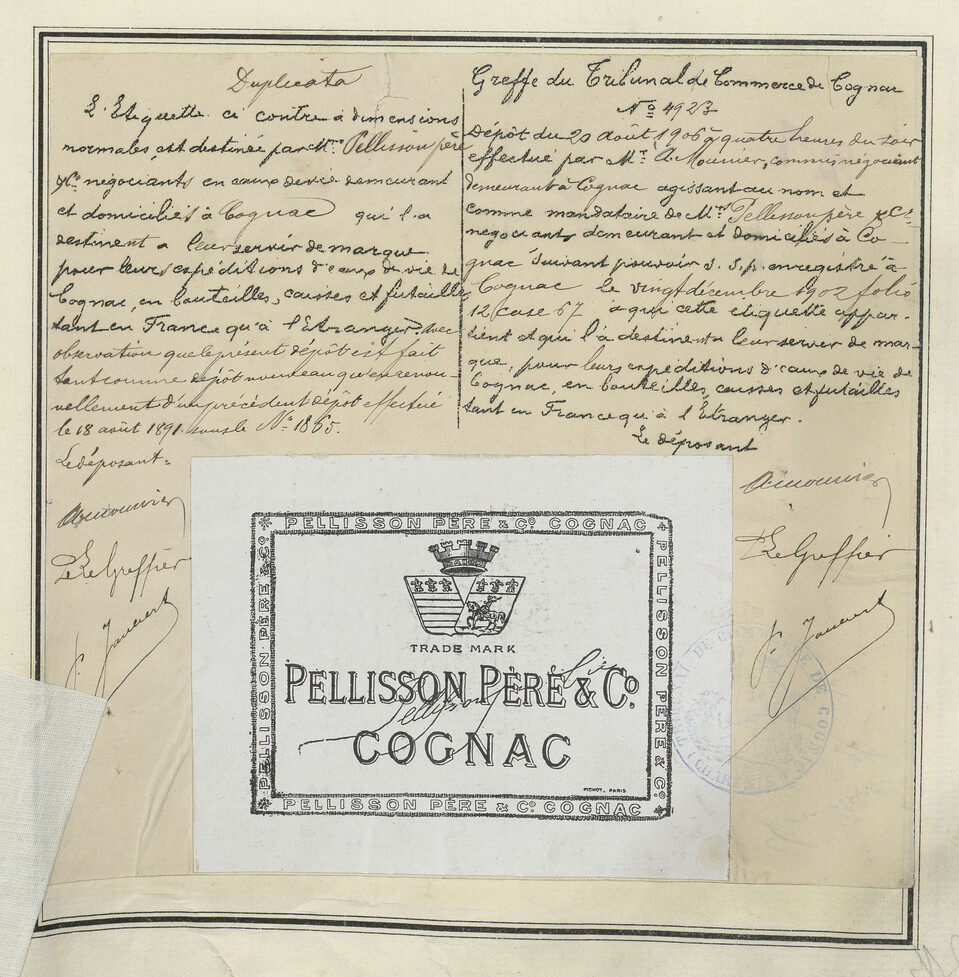 Duplicata
L'Etiquette ci contre à dimensions
normales, est destinée par Mrs Pellisson père
& Co négociants en eaux de vie demeurant
et domiciliés à Cognac qui l'a
destinent a leur servir de marque
pour leurs expéditions d'eaux de vie de
Cognac, en bouteilles, caisses et futailles
tant en France qu'à l'Etranger. Avec
observation que le présent dépôt est fait
tant comme dépôt nouveau qu'en renou-
vellement d'un précédent dépôt effectué
le 18 août 1891 sous le No 1865.
Le déposant
AMounier
Le Greffier
Greffe du Tribunal de Commerce de Cognac
No 4923
Dépôt du 20 août 1906 à quatre heures du soir
effectué par Mr A. Mounier, commis négociant
demeurant à Cognac agissant au nom et
comme mandataire de Mrs Pellisson père & Co
negociants demeurant et domiciliés à Co-
gnac suivant pouvoir s. s. p. enregistré à
Cognac le vingt décembre 1902 folio
12 case 67 à qui cette etiquette appar-
tient et qui l'a destinent a leur server de mar-
que, pour leurs expéditions d'eaux de vie de
Cognac, en bouteilles, caisses et futailles
tant en France qu'à l'Etranger.
Le déposant
AMounier
Le Greffier
PELLISSON PÈRE & Co COGNAC
PELLISSON PÈRE & Co
PELLISSON PÈRE & Co
TRADE MARK
PELLISSON PÈRE & Co
COGNAC
PICHOT, PARIS
PELLISSON PÈRE & Co COGNAC
TRIBUNAL DE COMMERCE DE COGNAC